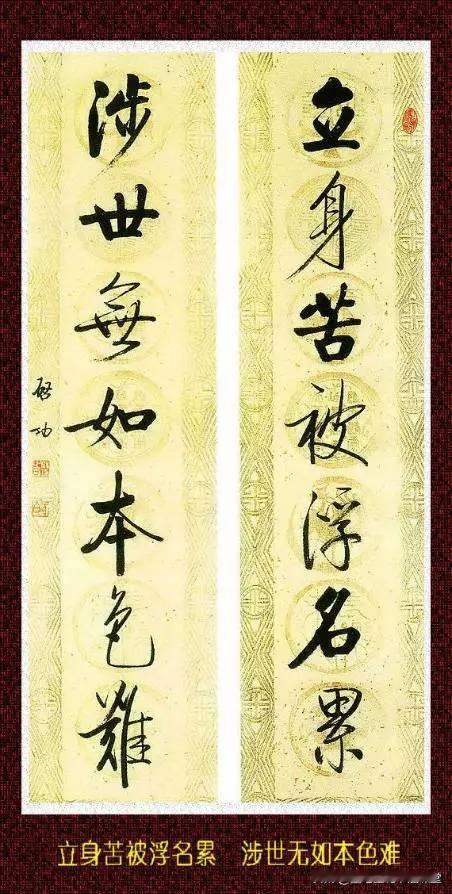 立身苦被浮名累
涉世無如本色難
启功
立身苦被浮名累 涉世无如本色难